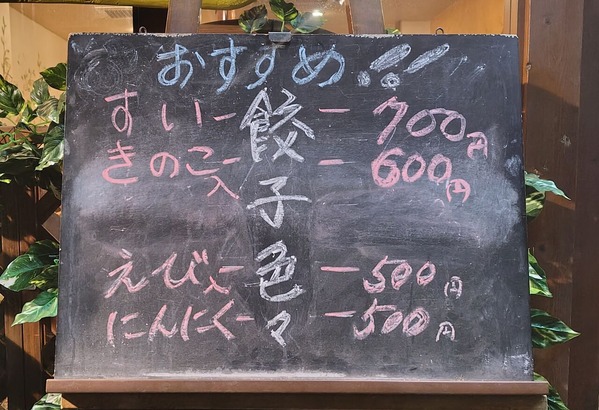 おすすめ!!!
すいー 餃 ー 700円
きのこ入ー ー 600円
子
えび入ー 色 ー 500円
にんにくー 々 ー 500円